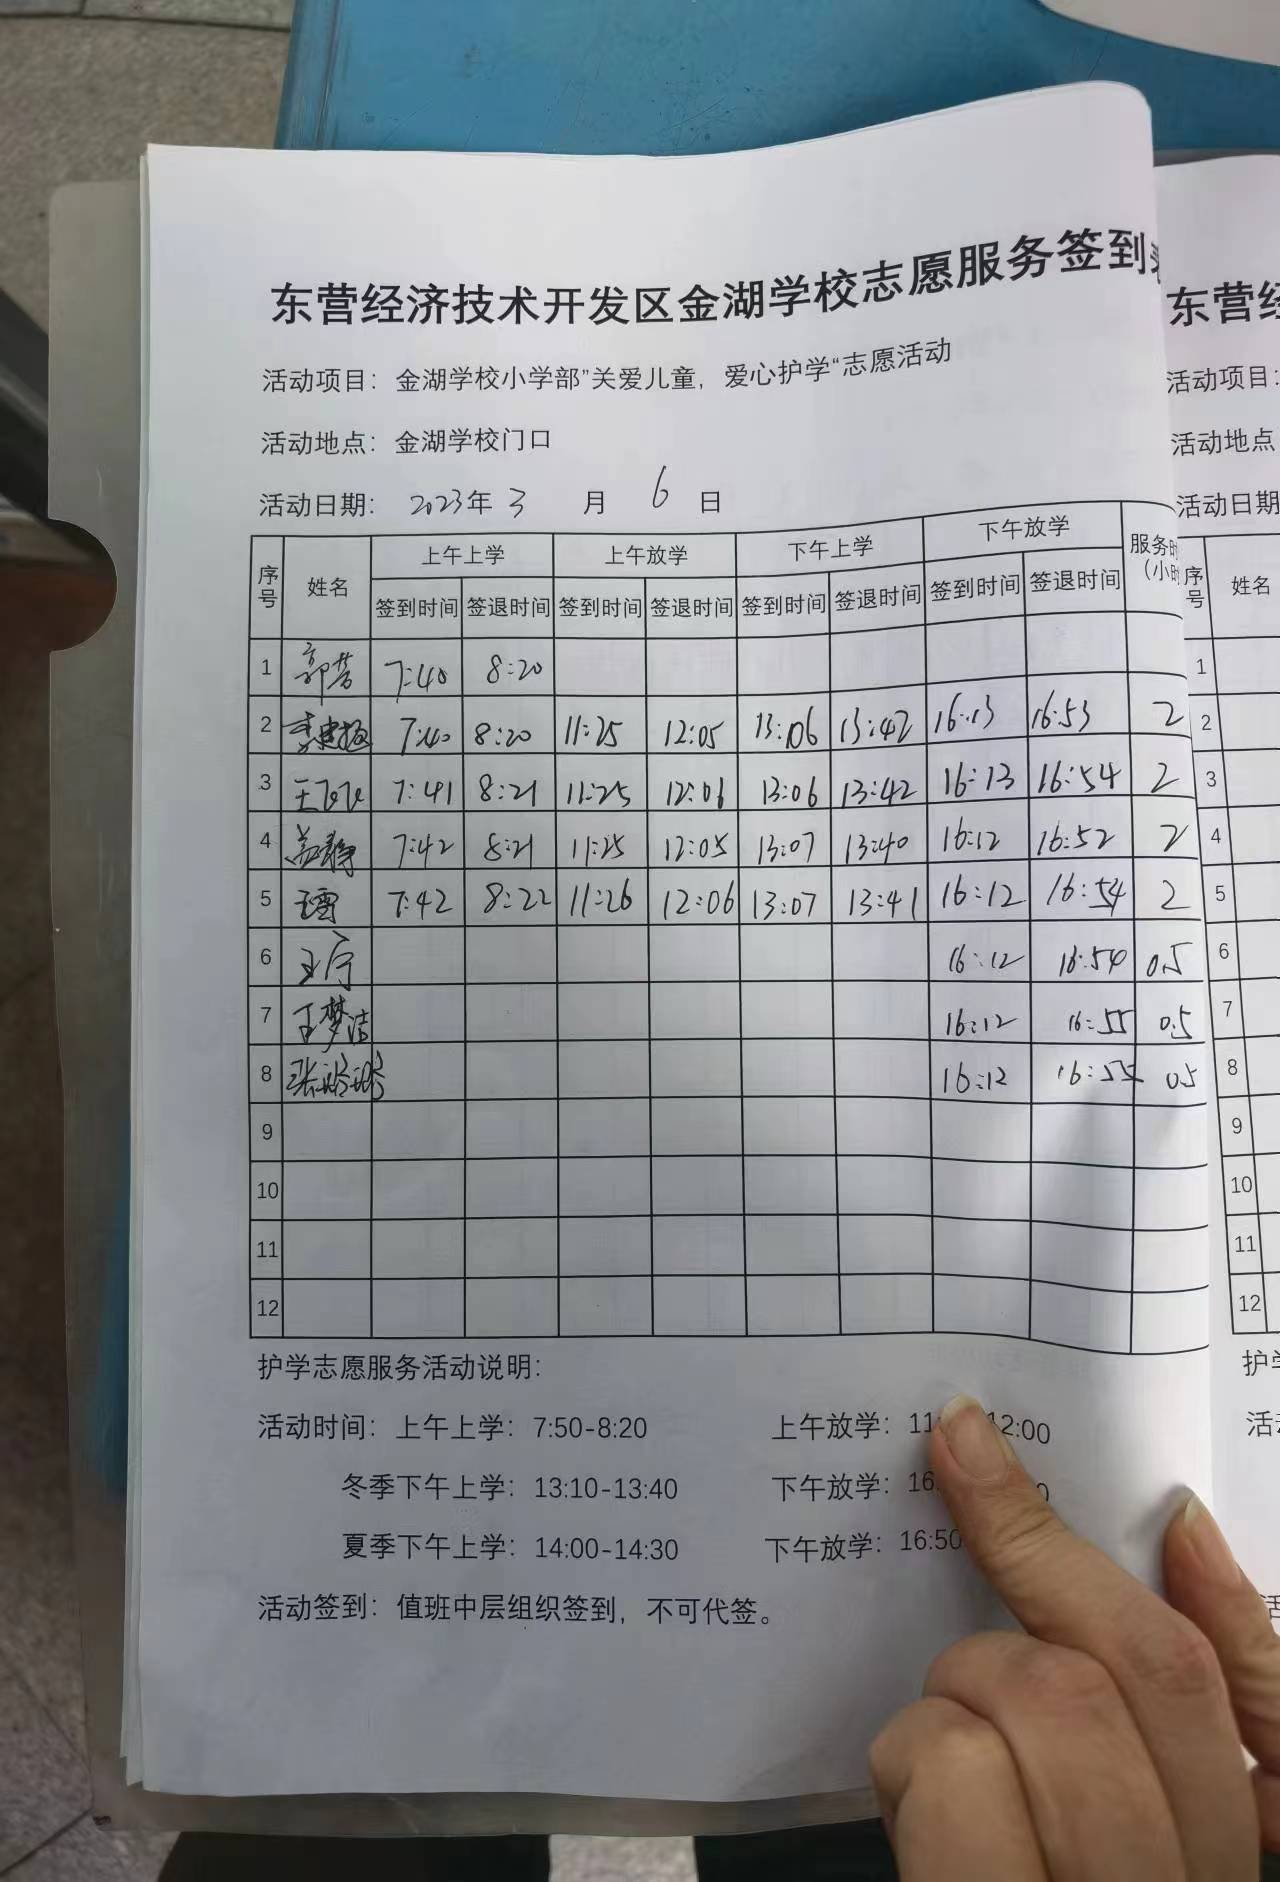 东营经济技术开发区金湖学校志愿服务签到
活动项目：金湖学校小学部”关爱儿童，爱心护学“志愿活动
活动地点：金湖学校门口
活动日期： 2023年 3 月 6 日
序号 姓名 上午上学 上午放学 下午上学 下午放学 服务时
（小时
签到时间 签退时间 签到时间 签退时间 签到时间 签退时间 签到时间 签退时间
1 7:40 8:20
2 7:40 8:20 11:25 12:05 13:06 13:42 16:13 16:53 2
3 王飞飞 7:41 8:21 11:25 12:06 13:06 13:42 16:13 16:54 2
4 7:42 8:21 11:25 12:05 13:07 13:40 16:12 16:52 2
5 7:42 8:22 11:26 12:06 13:07 13:41 16:12 16:54 2
6 16:12 16:54 0.5
7 王梦洁 16:12 16:55 0.5
8 16:12 16:55 0.5
9
10
11
12
护学志愿服务活动说明：
活动时间：上午上学：7:50-8:20 上午放学：11 12:00
冬季下午上学：13:10-13:40 下午放学：16 0
夏季下午上学：14:00-14:30 下午放学：16:50
活动签到：值班中层组织签到，不可代签。
东营经
活动项目：
活动地点
活动日期
序号 姓名
1
2
3
4
5
6
7
8
9
10
11
12
护学
活动
活